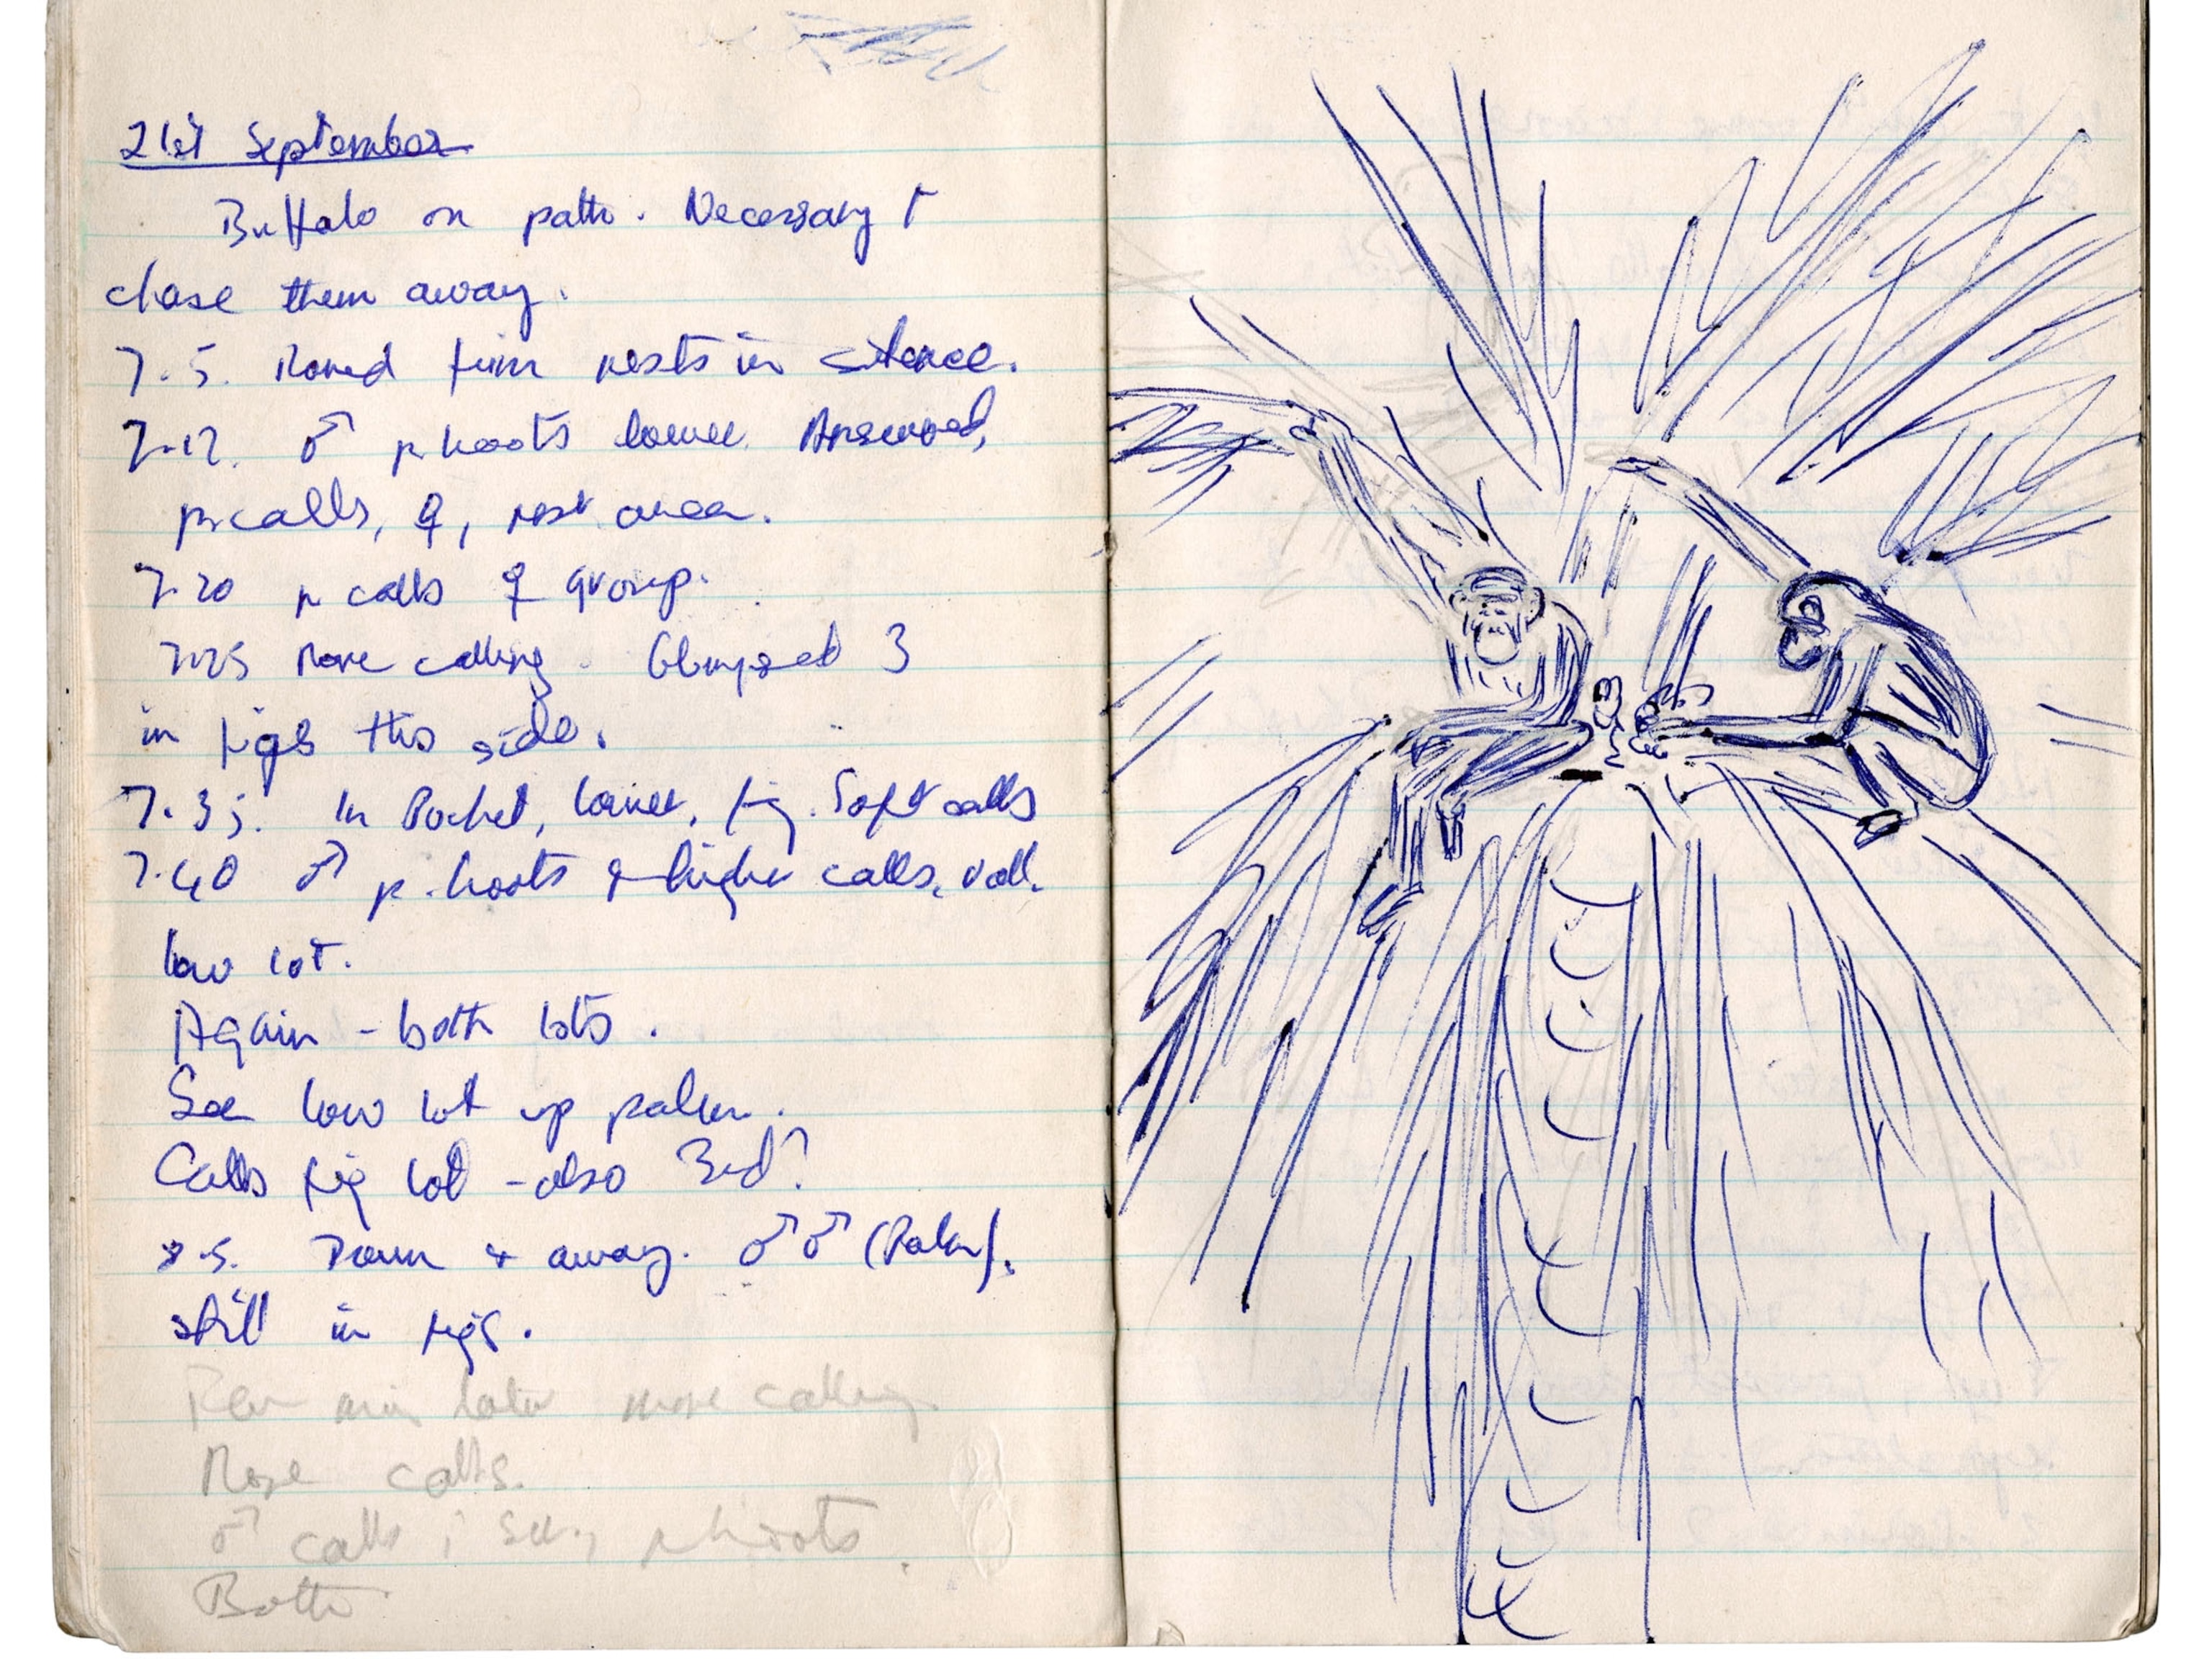 21st September
Buffalo on path. Necessary t
chase them away.
7.5. Round from nests in silence.
7.17. ♂ p.hoots lower. Answered,
p.calls, ♀, nest area.
7.20 p calls ♀ group.
7.25 More calling. Glimpsed 3
in figs this side.
7.35. In Pocket, lower, fig. Soft calls
7.40 ♂ p.hoots & higher calls,
low lot.
Again - both lots.
See low lot up palm.
Calls fig lot - also 3rd?
8.5. Down & away. ♂♂ (Palm).
still in figs.
Few min later more calling
More calls.
♂ calls, p hoots.
Both